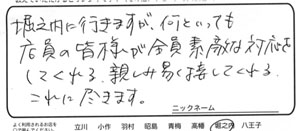 堀之内に行きますが、何といっても
店員の皆様が全員素敵な対応を
してくれる。親しみ易く接してくれる。
これに尽きます。
ニックネーム
よく利用されるお店を
立川 小作 羽村 昭島 青梅 高幡 堀之内 八王子